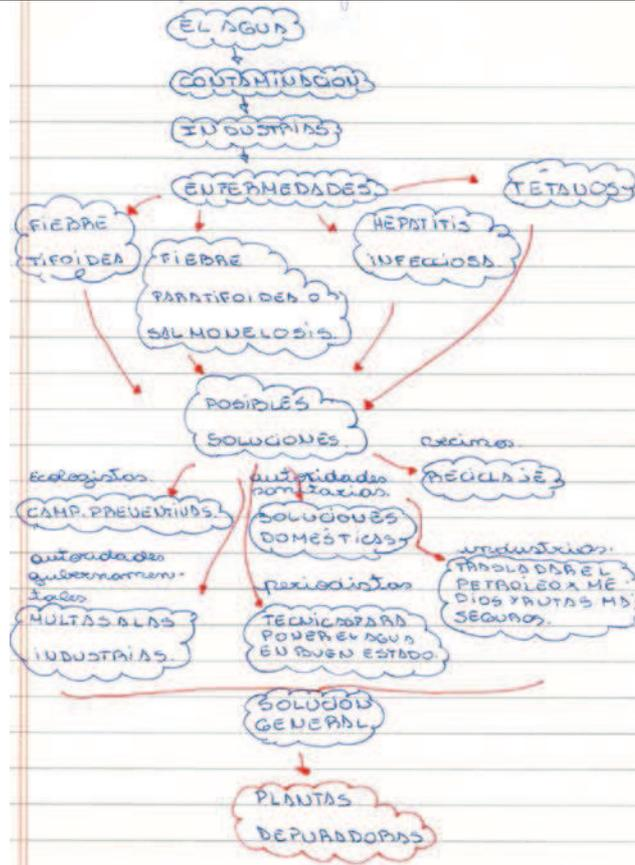 EL AGUA
CONTAMINACIÓN
INDUSTRIAS
ENFERMEDADES
TÉTANOS
FIEBRE
TIFOIDEA
FIEBRE
PARATIFOIDEA O
SALMONELOSIS.
HEPATITIS
INFECCIOSA.
POSIBLES
SOLUCIONES.
vecinos.
RECICLAJE
Ecologistas.
CAMP. PREVENTIVAS.
autoridades
sanitarias.
SOLUCIONES
DOMÉSTICAS
industrias.
TRASLADAR EL
PETROLEO X ME
DIOS Y RUTAS MÁS
SEGUROS.
autoridades
gubernamen-
tales
MULTAS A LAS
INDUSTRIAS.
periodistas
TECNICAS PARA
PONER EL AGUA
EN BUEN ESTADO.
SOLUCIÓN
GENERAL
PLANTAS
DEPURADORAS